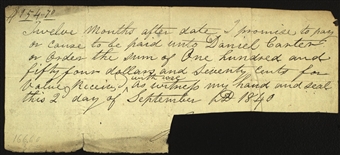 $154.70
Twelve Months after date I promise to pay
or cause to be paid unto Daniel Carter
or Order the Sum of One hundred and
fifty four dollars and Seventy Cents for
with use
Value Received, as witness my hand and seal
this 2 day of September AD 1840